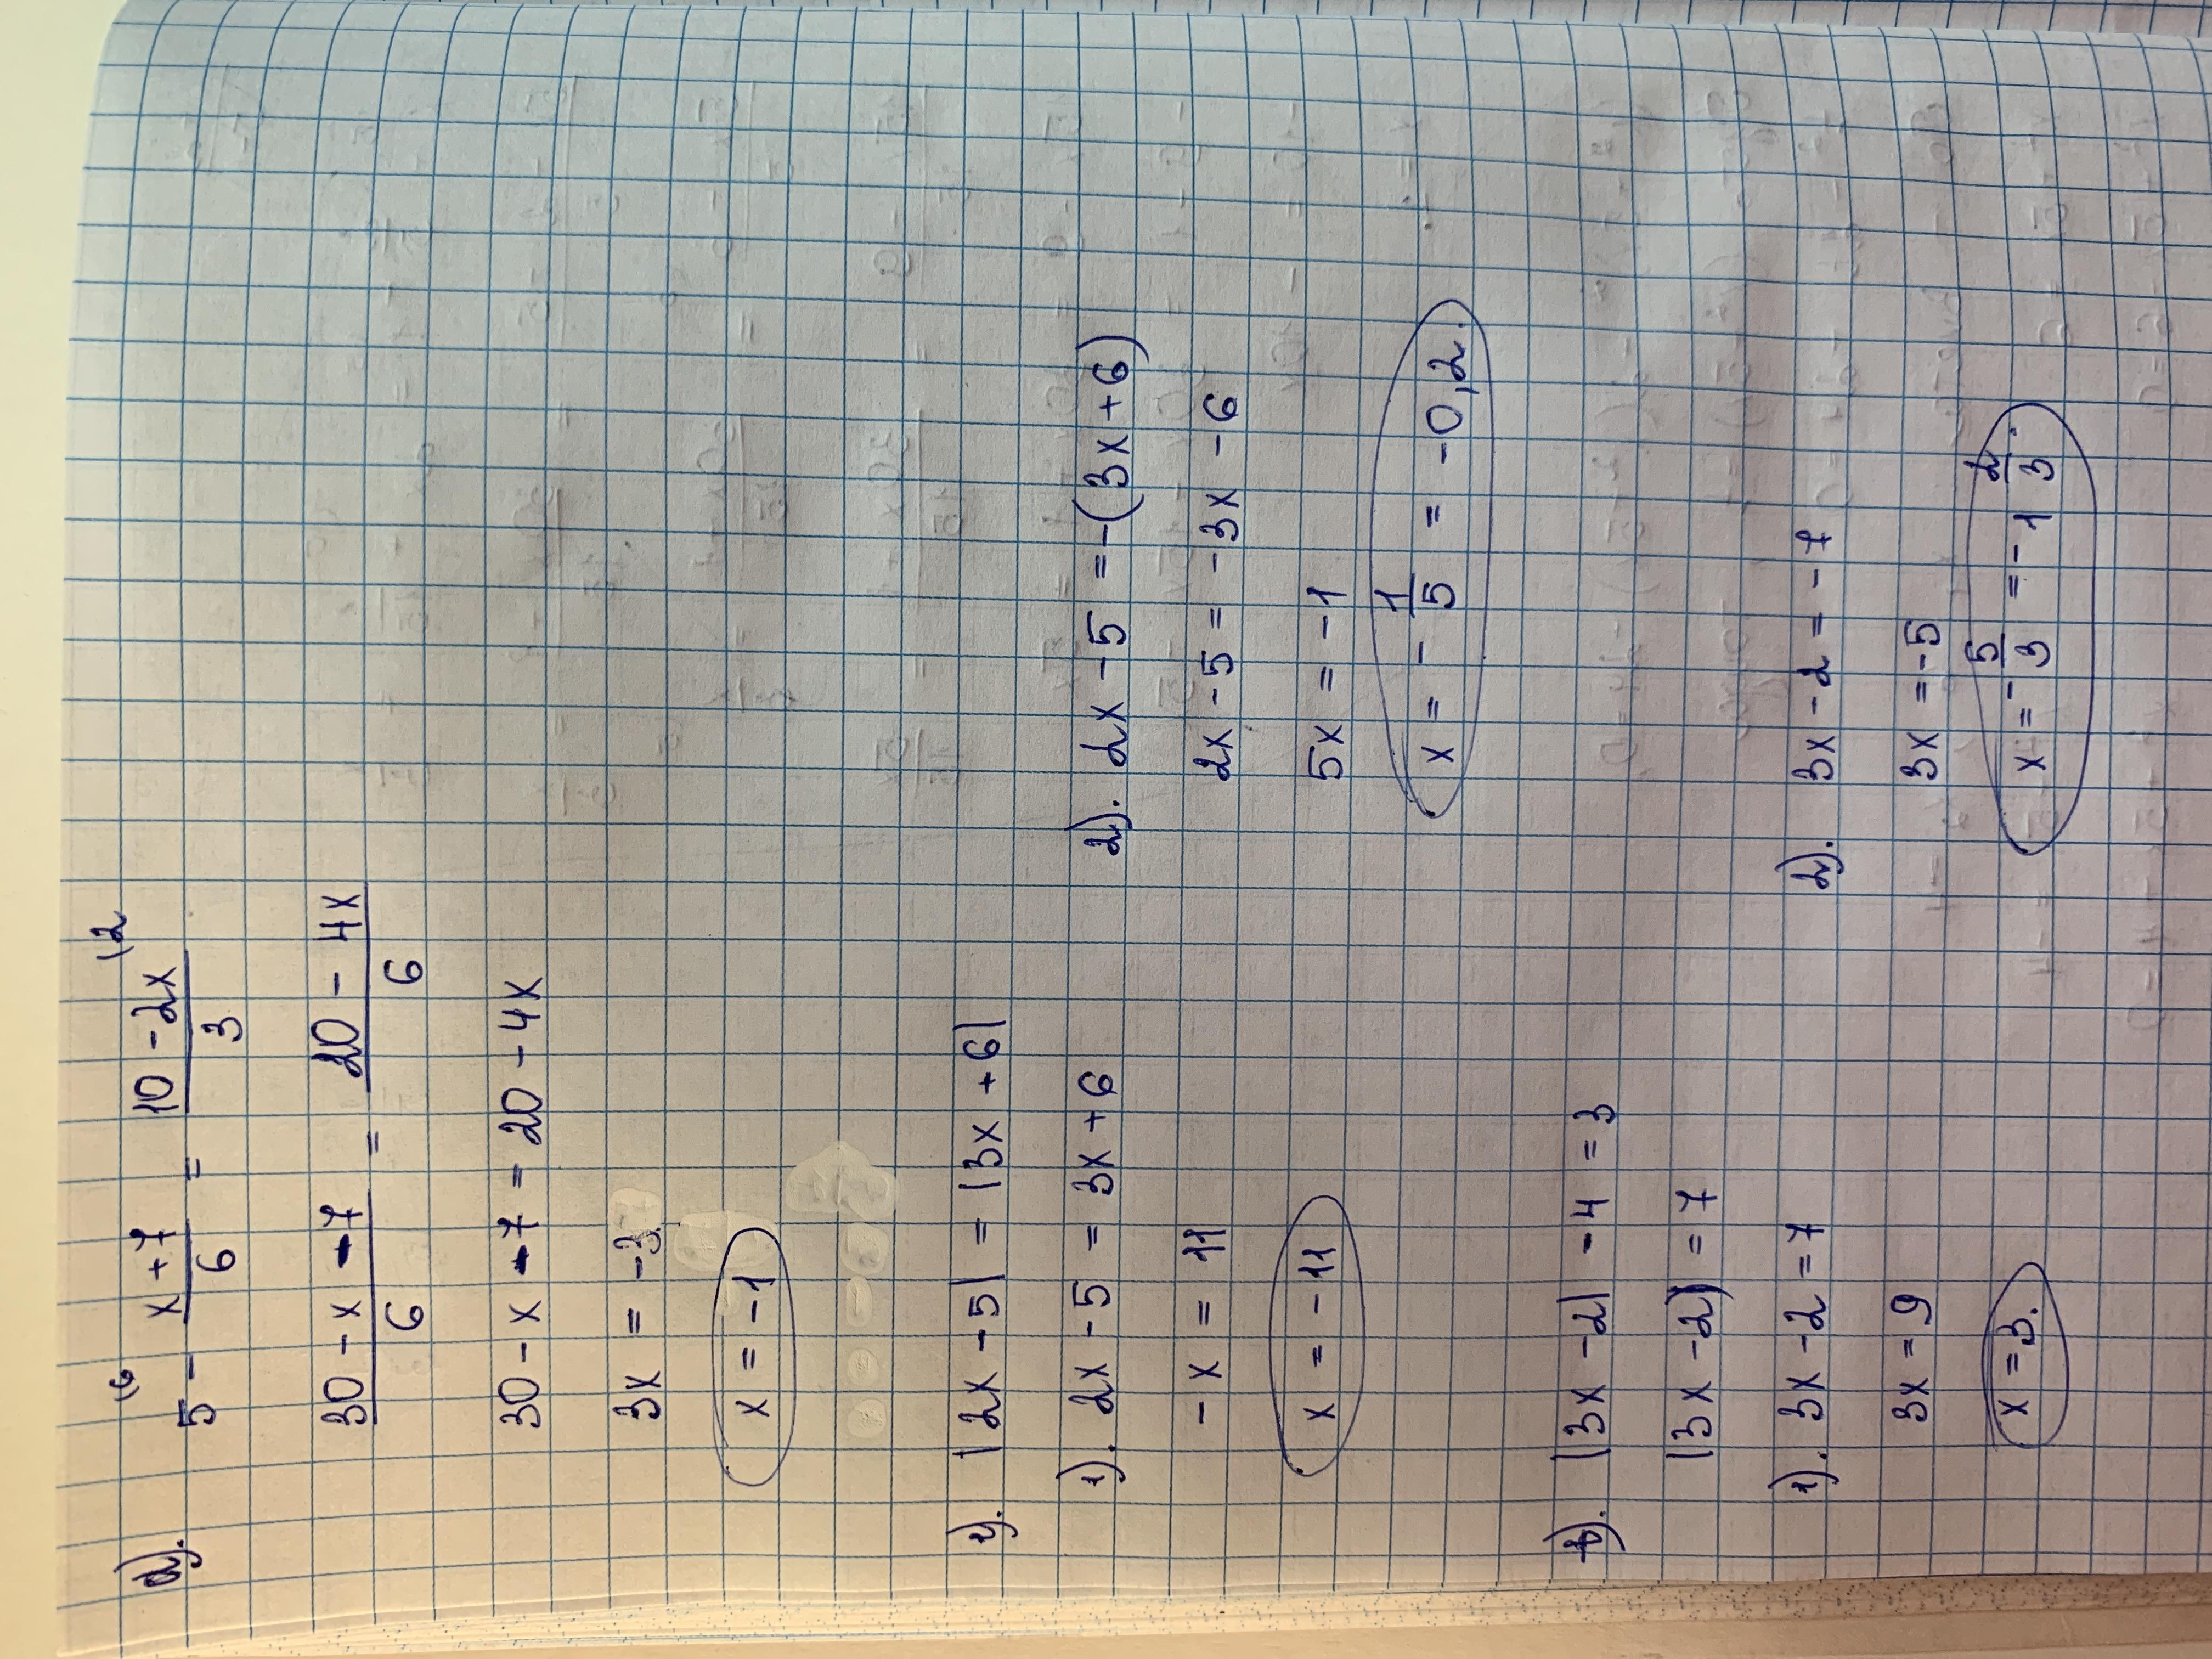 а). 5 \6 - (x+7)/6 = (10-2x)/3 \2
(30-x-7)/6 = (20-4x)/6
30-x-7 = 20-4x
3x = -3
x = -1
г). |2x-5| = |3x+6|
1). 2x-5 = 3x+6
-x = 11
x = -11
2). 2x-5 = -(3x+6)
2x-5 = -3x-6
5x = -1
x = -1/5 = -0,2.
в). |3x-2|-4 = 3
|3x-2| = 7
1). 3x-2 = 7
3x = 9
x = 3.
2). 3x-2 = -7
3x = -5
x = -5/3 = -1 2/3.